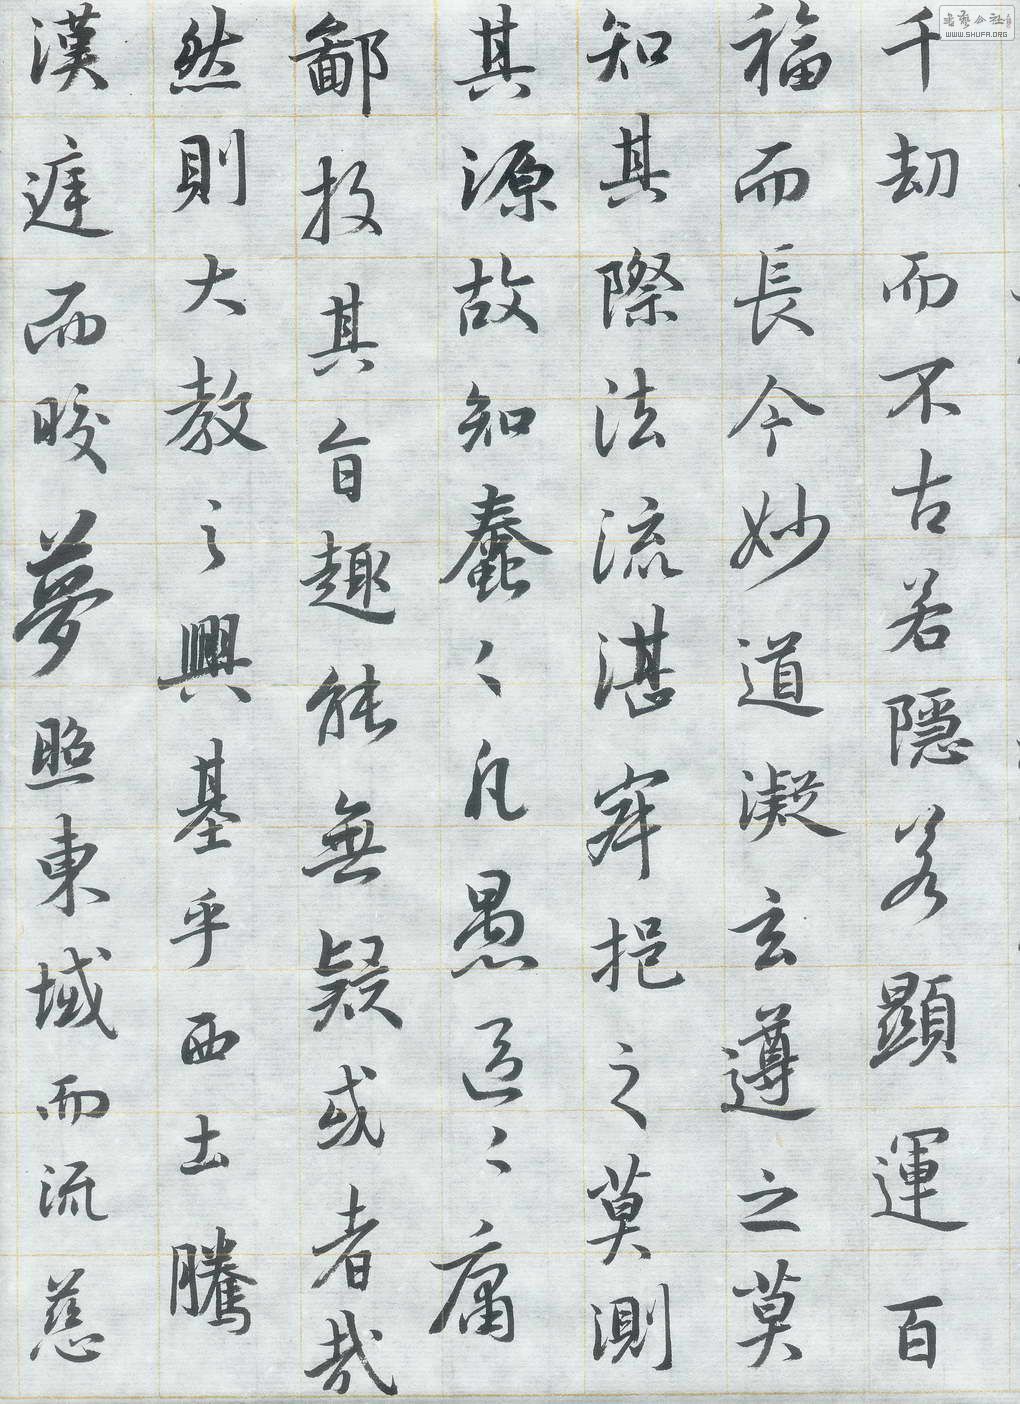 千劫而不古若隱若顯運百
福而長今妙道凝玄遵之莫
知其際法流湛寂挹之莫測
其源故知蠢〻凡愚區〻庸
鄙投其旨趣能無疑或者哉
然則大教之興基乎西土騰
漢庭而皎夢照東域而流慈
書藝公社
WWW.SHUFA.ORG